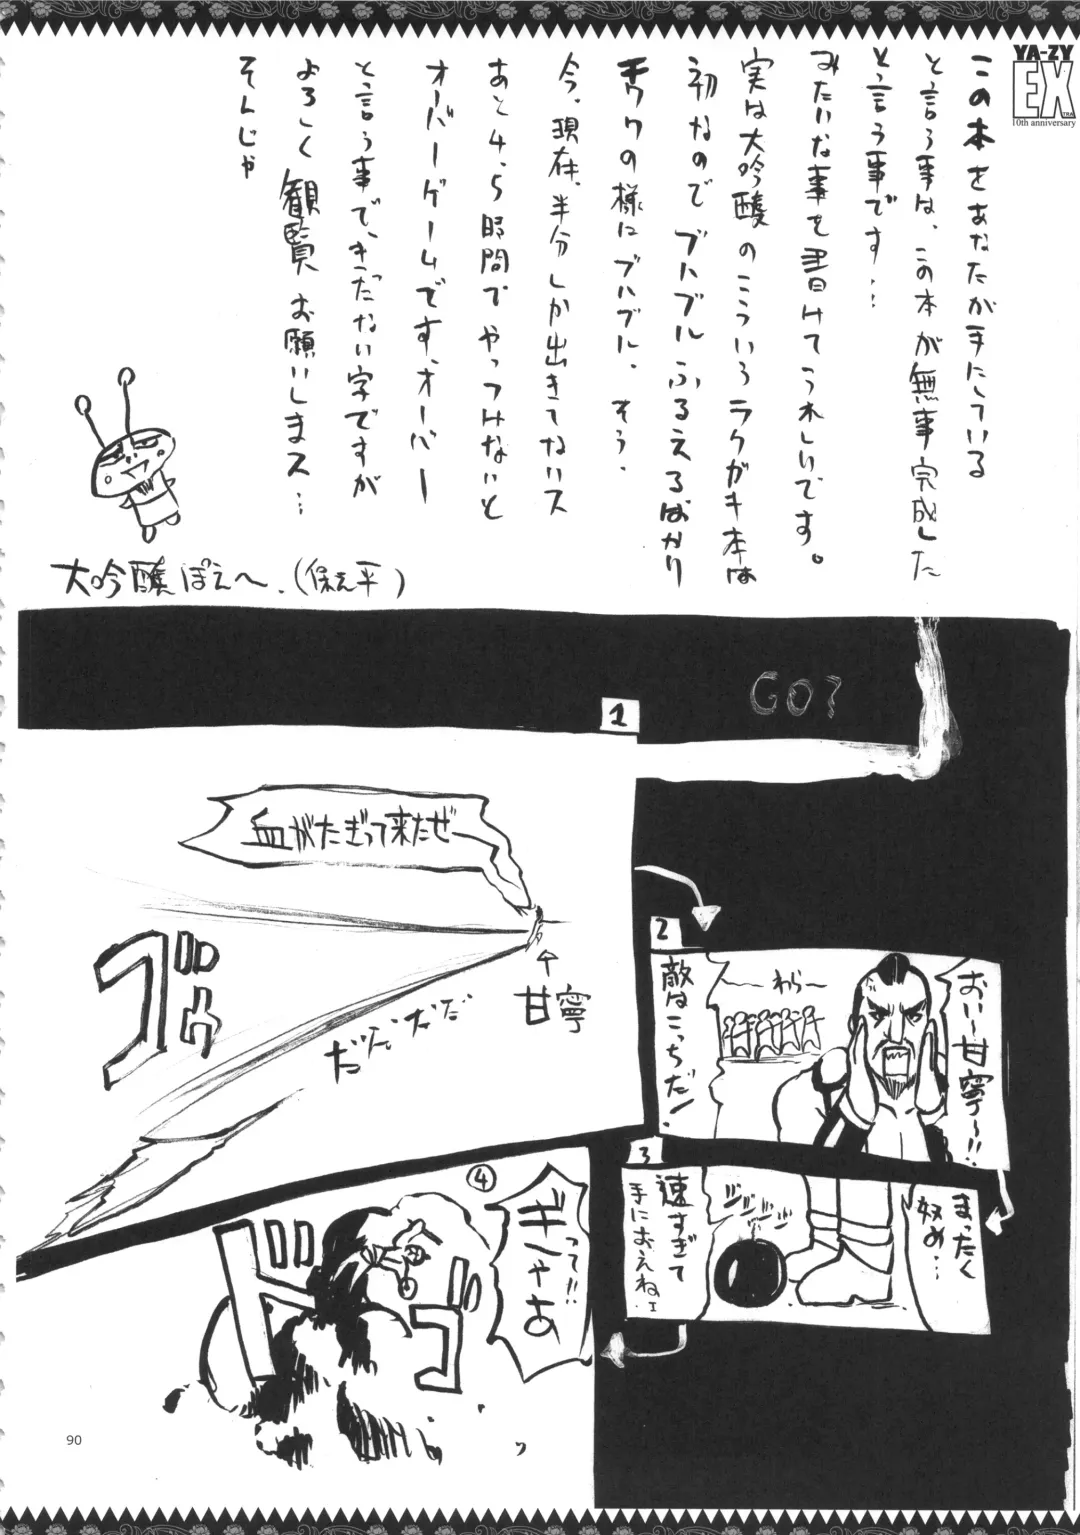 YA-ZY
EXTRA
10th anniversary
この本をあなたが手にしている
と言う事は、この本が無事完成した
と言う事です…
みたいな事を書けてうれしいです。
実は大吟醸のこういうラクガキ本は
初なのでブルブルふるえるばかり
チワワの様にブルブル、そう、
今、現在、半分しか出きてないス
あと4、5時間でやっつけないと
オーバーゲームです、オーバー
と言う事で、きったない字ですが
よろしく観覧お願いしまス…
そんじゃ
大吟醸ぽえへ、(保え平)
GO?
1
血がたぎって来たぜー
ゴゴゴ
だだだだだ
甘寧
2
おい〜甘寧〜!!
わら〜
敵はこっちだ!
3
まったく
奴め…
速すぎて
手におえねェ
ジジジジ
④
ぎゃあ
って!!
ドゴ
90